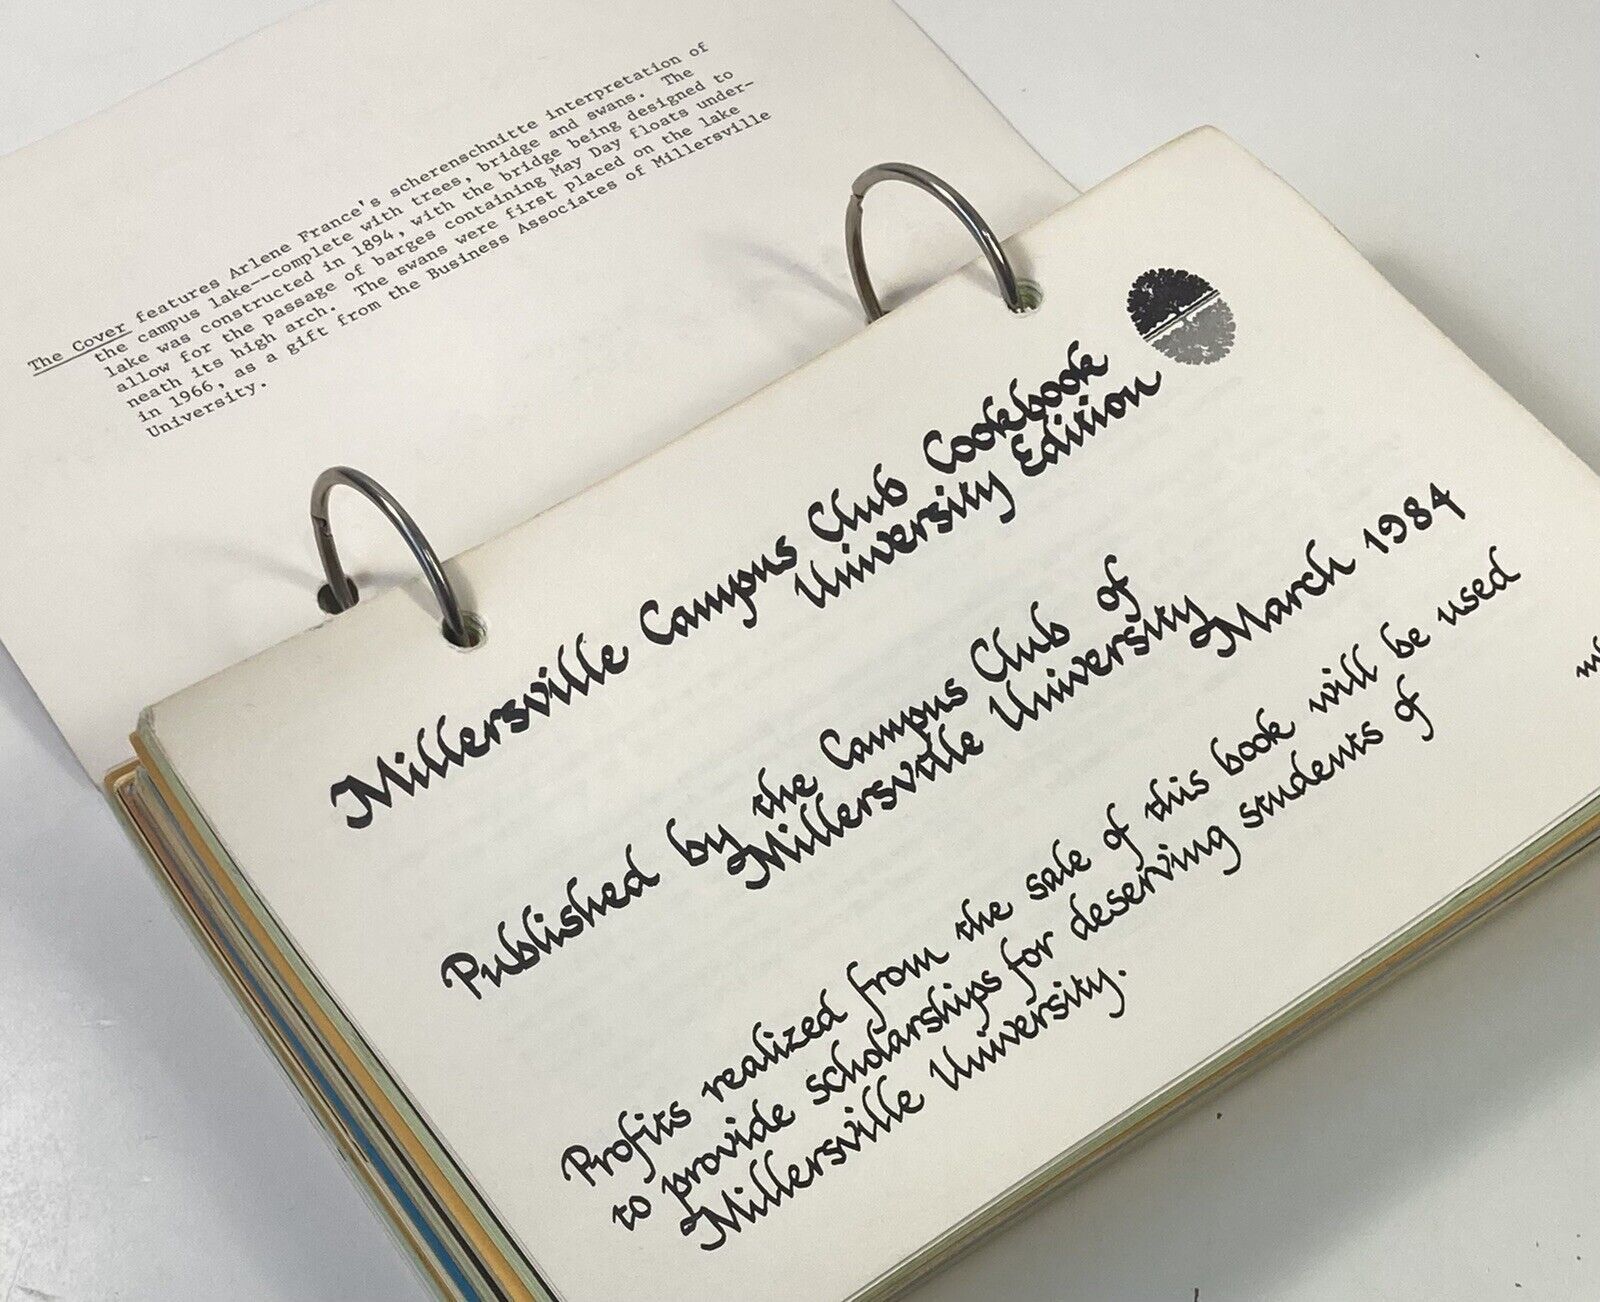 The Cover features Arlene France's scherenschnitte interpretation of
the campus lake--complete with trees, bridge and swans. The
lake was constructed in 1894, with the bridge being designed to
allow for the passage of barges containing May Day floats under-
neath its high arch. The swans were first placed on the lake
in 1966, as a gift from the Business Associates of Millersville
University.
Millersville Campus Club Cookbook
University Edition
Published by the Campus Club of
Millersville University
March 1984
Profits realized from the sale of this book will be used
to provide scholarships for deserving students of
Millersville University.